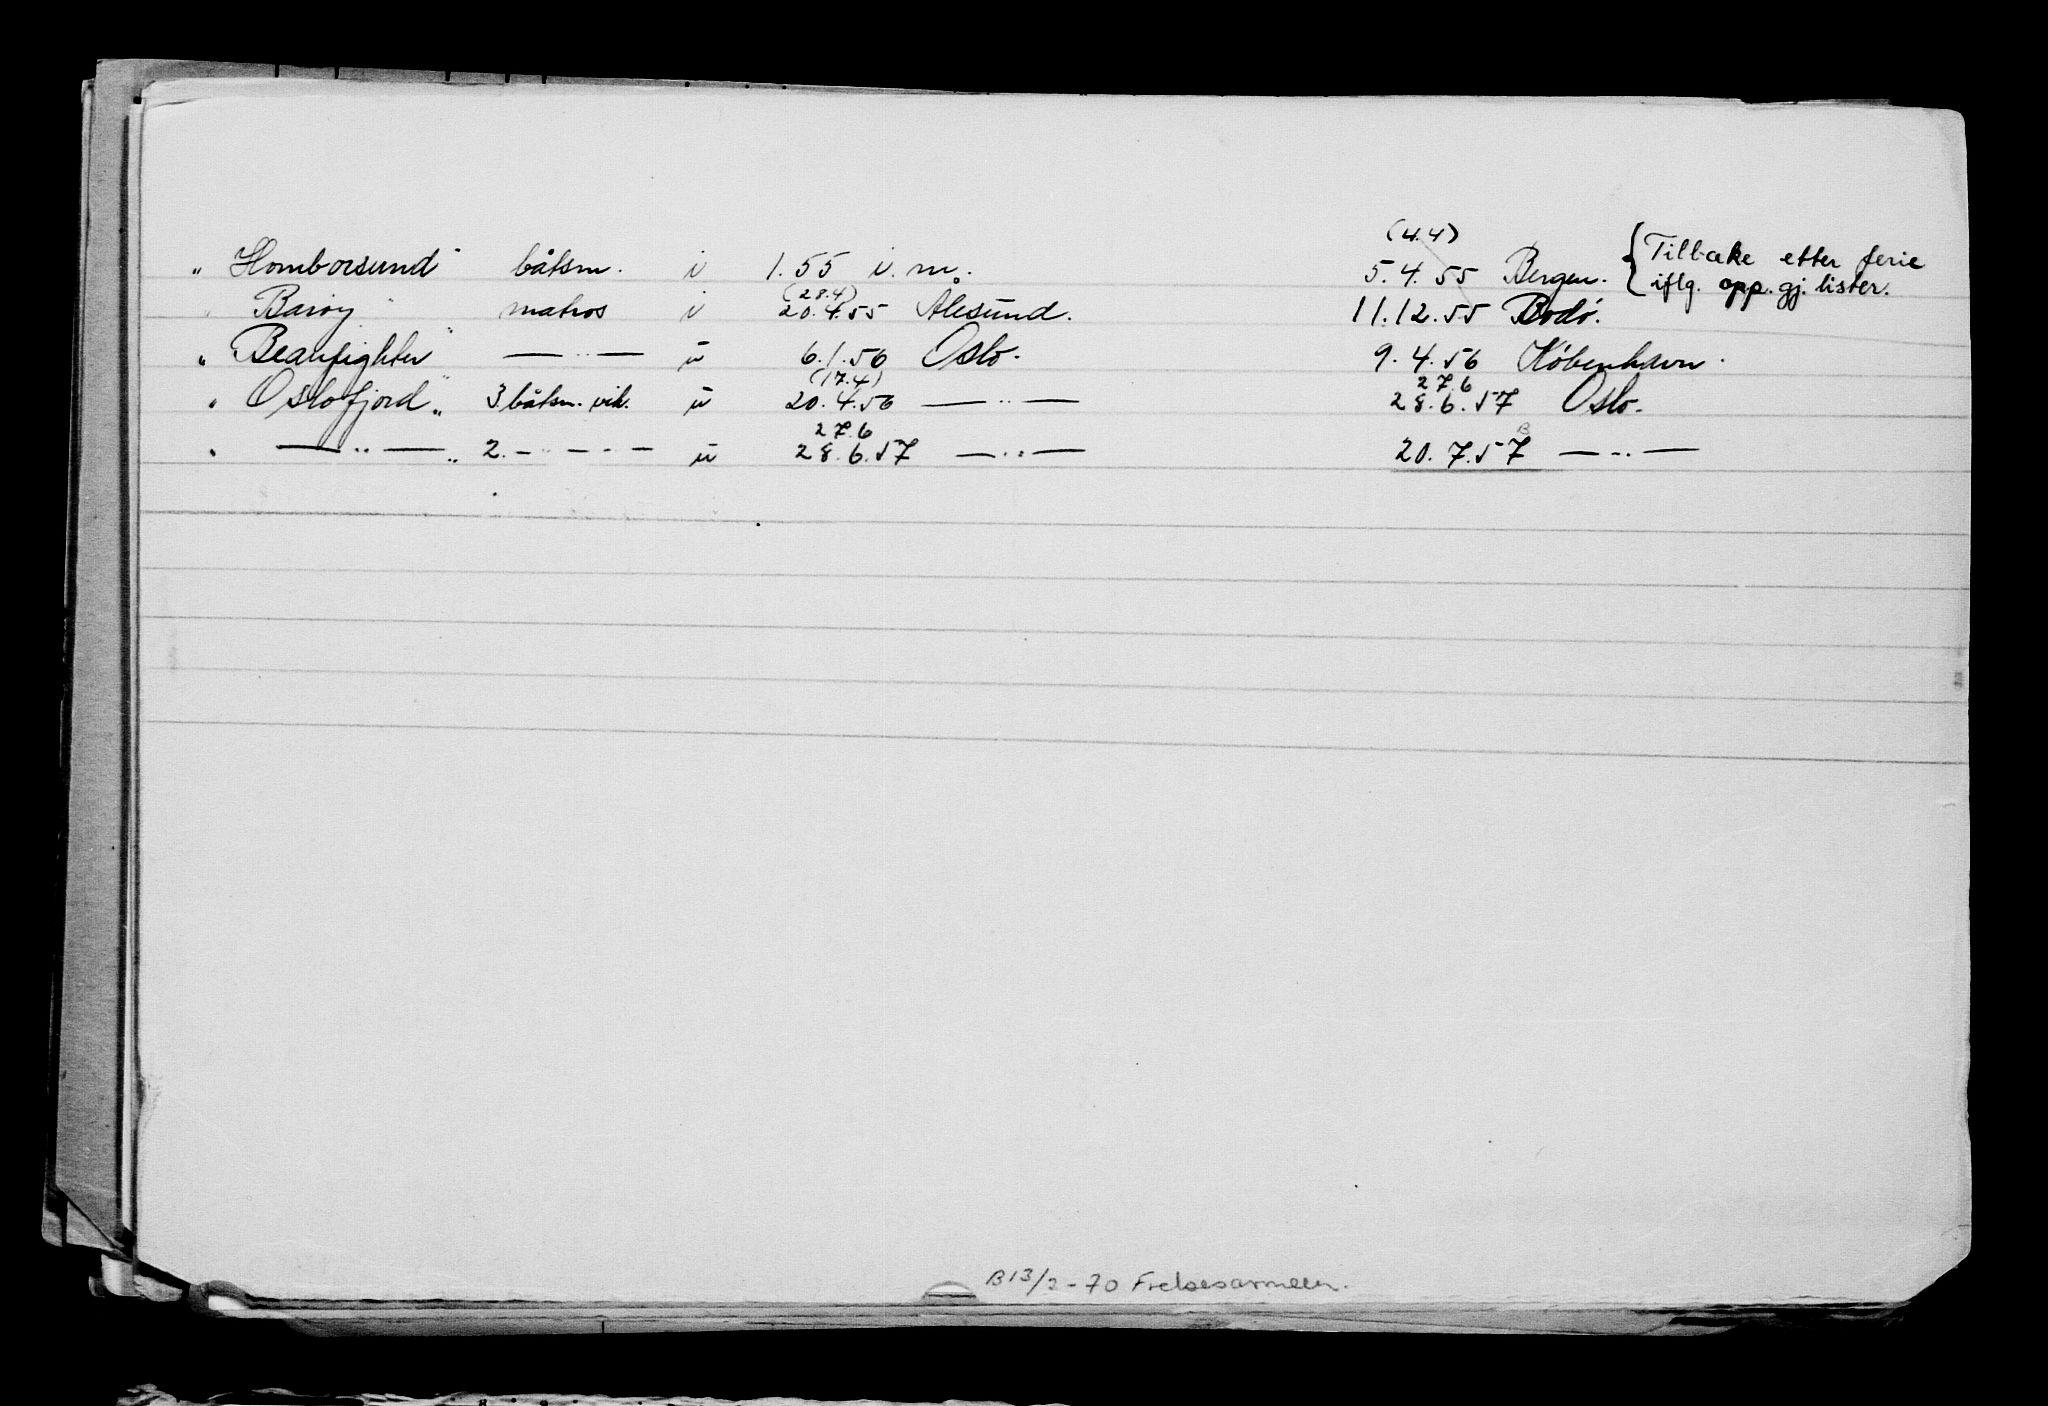 (4.4)
„ Homborsund" båtsm. i 1.55 i.m. 5.4.55 Bergen. { Tilbake etter ferie
iflg. opp.gj. lister.
(28.4)
„ Barøy " matros i 20.4.55 Ålesund. 11.12.55 Bodø.
„ Beaufighter " — „ — i 6.1.56 Oslo. 9.4.56 København.
(17.4) 27.6
„ Oslofjord „ 3. båtsm. vik. i 20.4.56 — „ — 28.6.57 Oslo.
27.6 B
„ — „ — „ 2. — „ — „ — i 28.6.57 — „ — 20.7.57 — „ —
B 13/2-70 Frelsesarmeen.